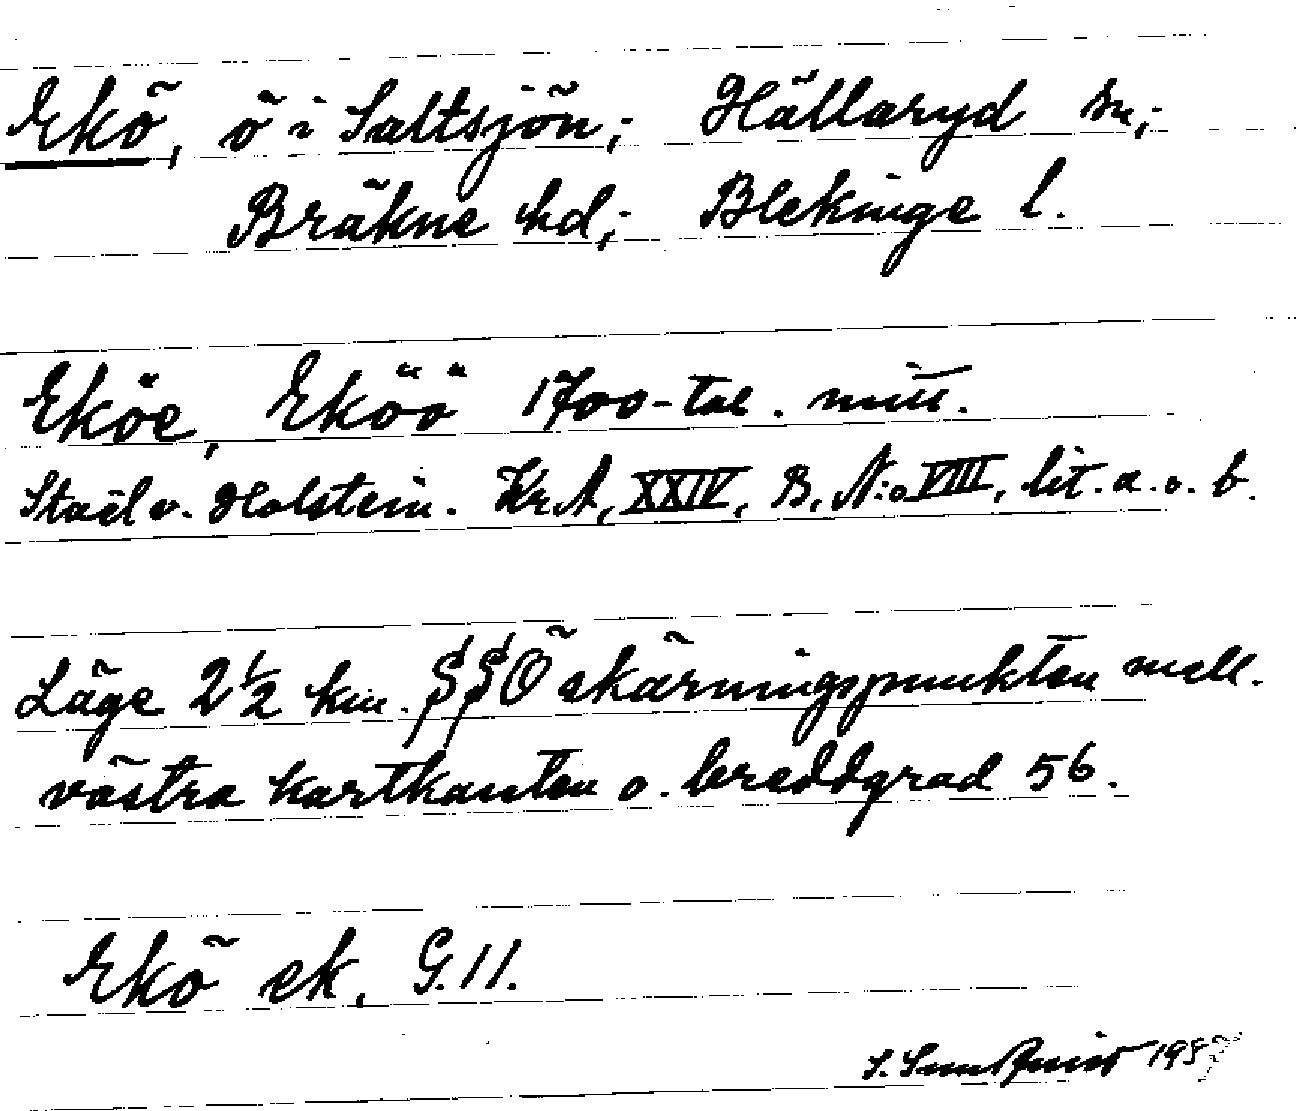 Ekö, ö i Saltsjön; Hällaryd sn;
Bräkne hd; Blekinge l.
Eköe, Eköö 1700-tal. mitt.
Staël v. Holstein. Kr.A, XXIV, B, N:o VIII, lit. a. o. b.
Läge 2 1/2 km. SSÖ skärningspunkten mell.
västra kartkanten o. breddgrad 56.
Ekö ek. G. 11.
S. Sundquist